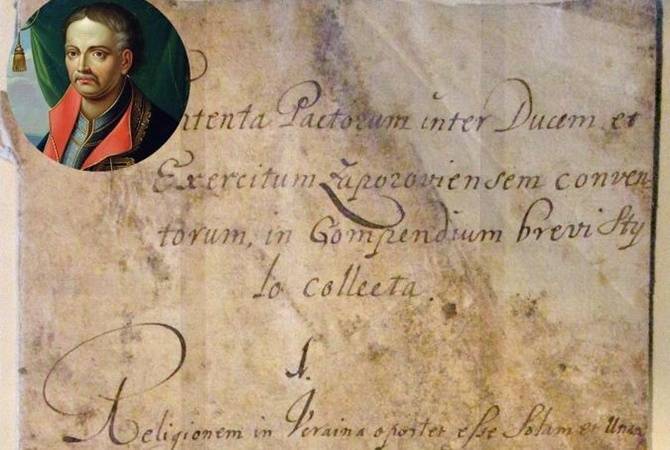 ntenta Pactorum inter Ducem et
Exercitum Zaporoviensem conven
torum, in Compendium brevi Sty
lo collecta.
1.
Religionem in Ucraina oportet esse Solam et Una